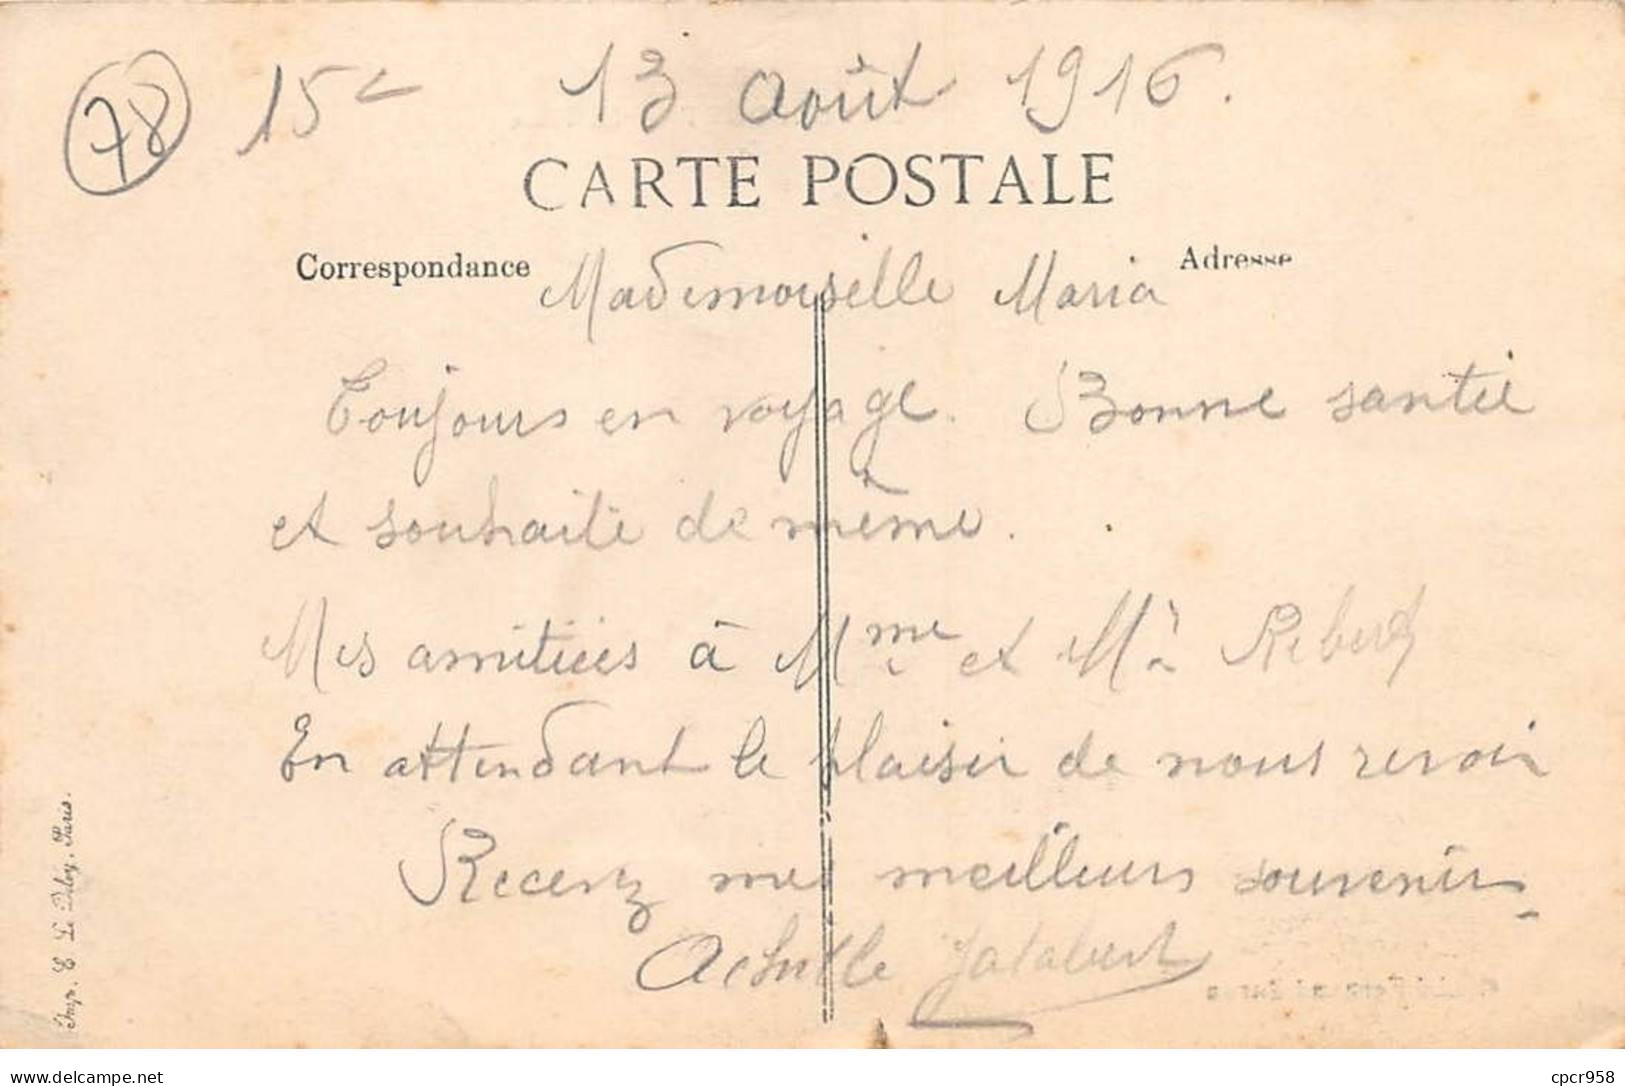 78 15c 13 Août 1916.
CARTE POSTALE
Correspondance Adresse
Mademoiselle Maria
Toujours en voyage. Bonne santée
et souhaite de même.
Mes amitiées à Mme et Mr
En attendant le plaisir de nous revoir
Recevez mes meilleurs souvenirs
Achille Jalabert
Imp. E. Le Deley, Paris.
delcampe.net
cpcr958